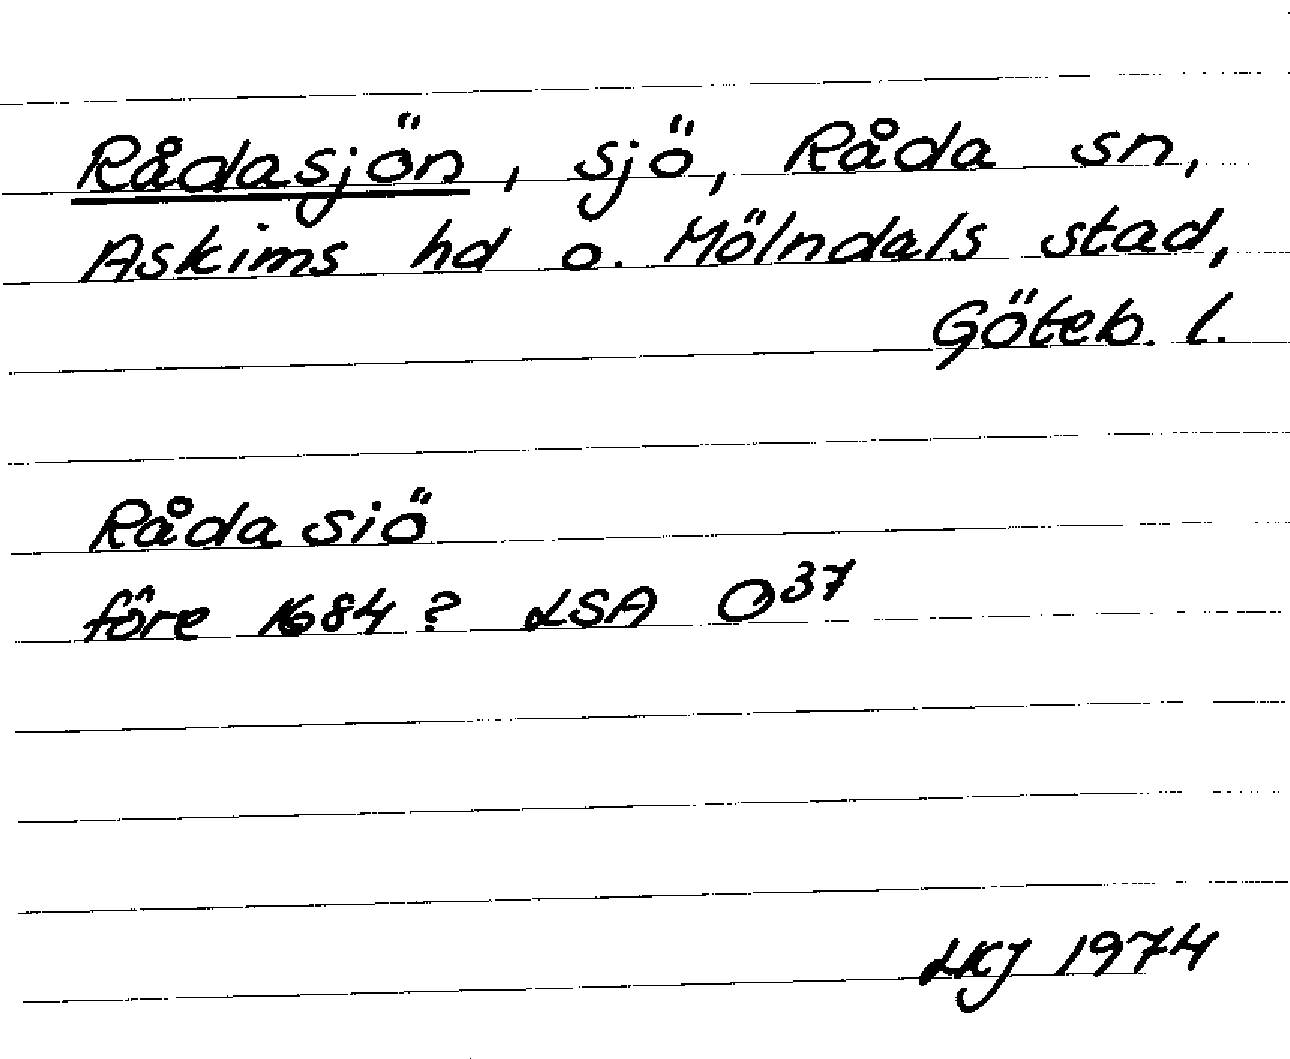 Rådasjön, sjö, Råda sn,
Askims hd o. Mölndals stad,
Göteb. l.
Råda siö
före 1684? LSA O37
LKJ 1974